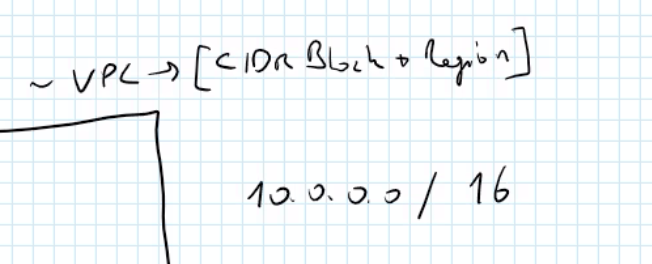 ~ VPC → [CIDR Block + Región]
10.0.0.0 / 16